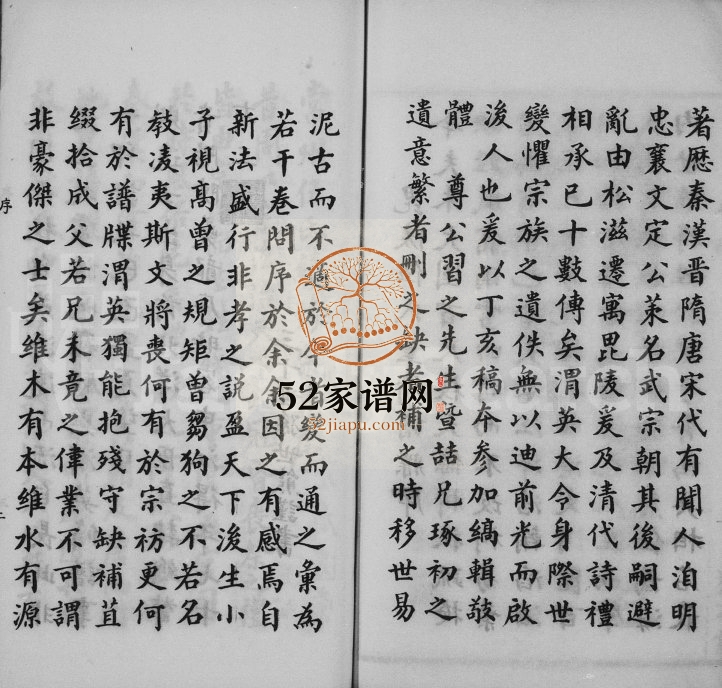 著歷秦漢晉隋唐宋代有聞人洎明
忠襄文定公萊名武宗朝其後嗣避
亂由松滋遷寓毘陵爰及清代詩禮
相承已十數傳矣渭英大令身際世
變懼宗族之遺佚無以迪前光而啟
後人也爰以丁亥稿本參加編輯敬
體 尊公習之先生暨喆兄琢初之
遺意繁者刪之缺者補之時移世易
泥古而不通於今有變而通之彙為
若干卷問序於余余因之有感焉自
新法盛行非孝之說盈天下後生小
子視高曾之規矩曾芻狗之不若名
教凌夷斯文將喪何有於宗祊更何
有於譜牒渭英獨能抱殘守缺補苴
綴拾成父若兄未竟之偉業不可謂
非豪傑之士矣維木有本維水有源
序
52家谱网
52jiapu.com